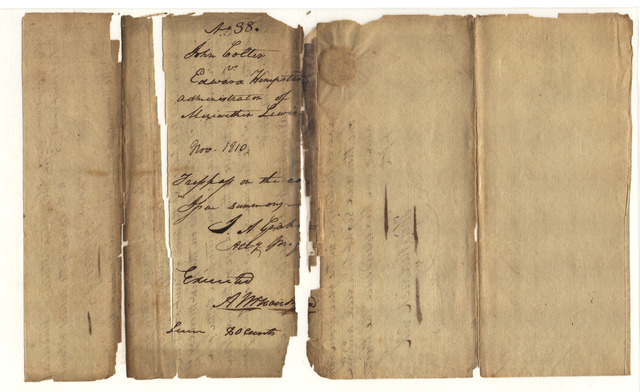 No 38.
John Colter
v
Edward Hempste
administrator of
Meriwether Lewis
Nov. 1810
Tresspass on the ca
Issue summons
J. A. Grah
Atty
Executed
A
80 cents